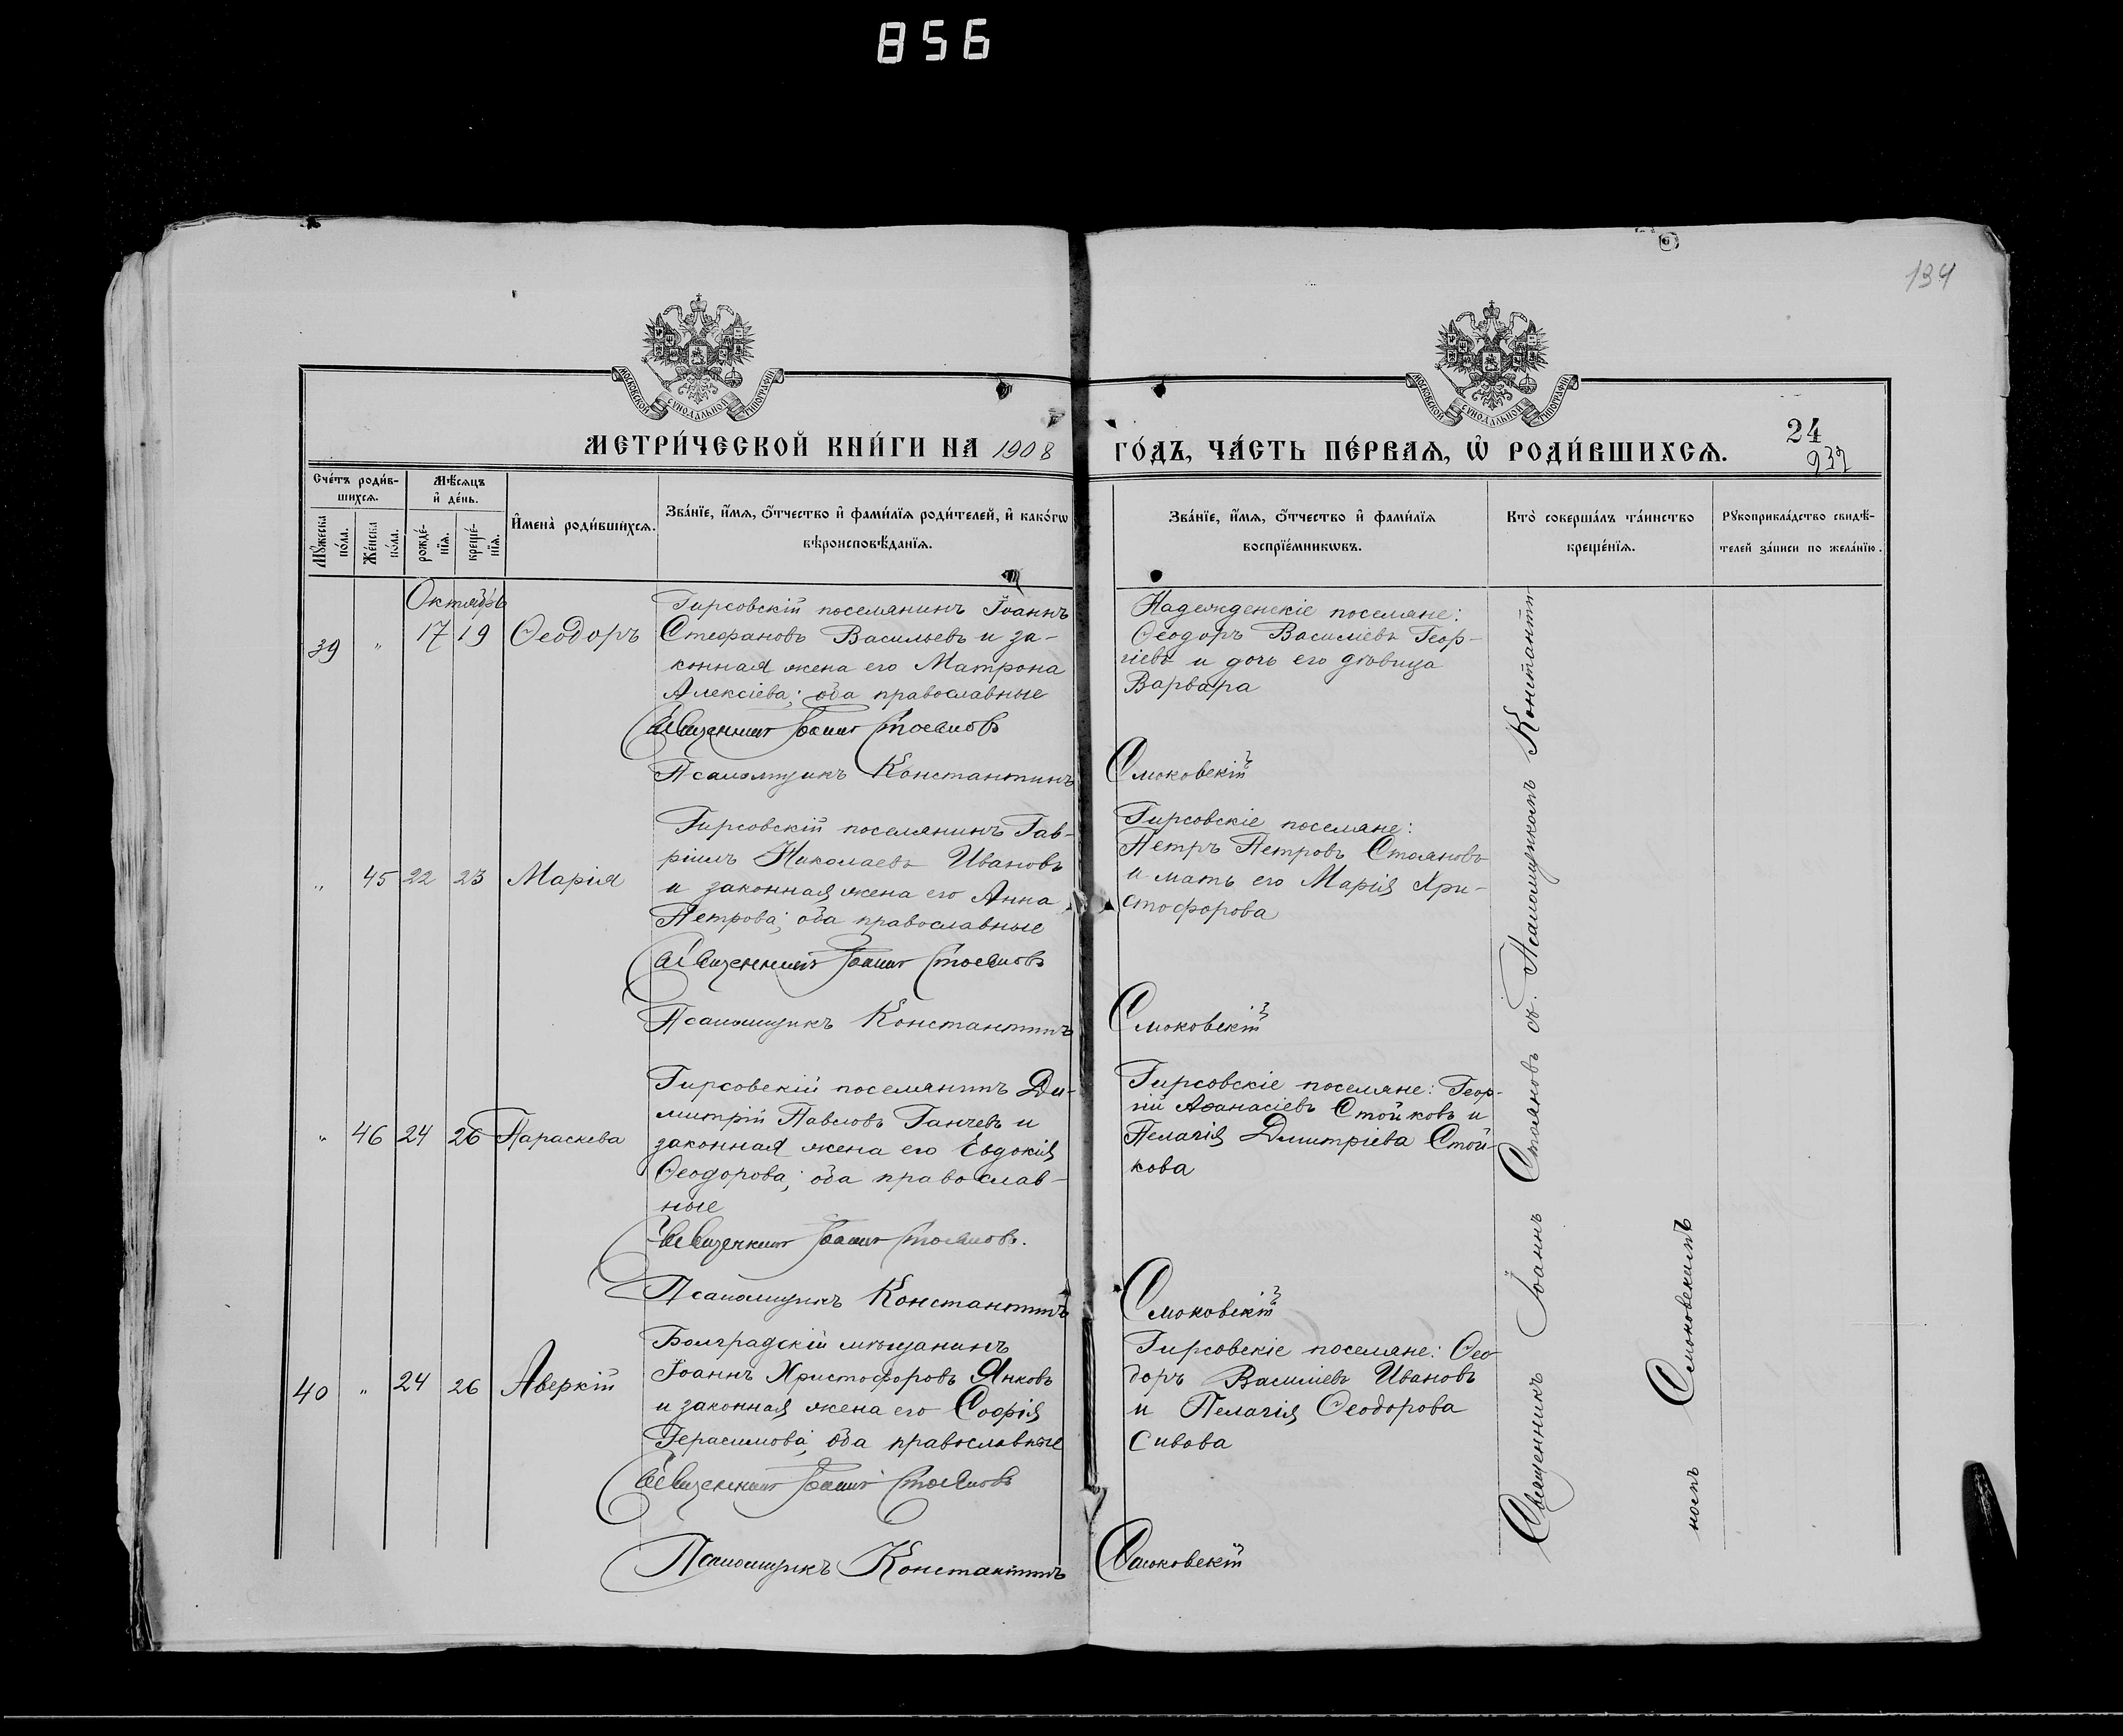 856
134
МОСКОВСКОЙ СѴНОДАЛЬНОЙ ТИПОГРАФІИ
МОСКОВСКОЙ СѴНОДАЛЬНОЙ ТИПОГРАФІИ
МЕТРИ́ЧЕСКОЙ КНИ́ГИ НА 1908
ГО́ДЪ, ЧА́СТЬ ПЕ́РВАѦ, Ѡ҆ РОДИ́ВШИХСѦ.
24
937
Сче́тъ роди́в-
шихсѧ.
Мꙋ́жеска по́ла.
Же́нска по́ла.
Мѣ́сѧцъ
и҆ де́нь.
рожде́-
нїѧ.
креще́-
нїѧ.
И҆мена̀ роди́вшихсѧ.
Зва́нїе, и҆́мѧ, ѻ҆́тчество и҆ фами́лїѧ роди́телей, и҆ како́гѡ
вѣроисповѣ́данїѧ.
Зва́нїе, и҆́мѧ, ѻ҆́тчество и҆ фами́лїѧ
воспрїе́мникѡвъ.
Кто̀ соверша́лъ та́инство
креще́нїѧ.
Рꙋкоприкла́дство свидѣ́-
телей за́писи по жела́нїю.
Октябрь
39 " 17 19 Ѳеодоръ
Гирсовскій поселянинъ Іоаннъ
Стефановъ Васильевъ и за-
конная жена его Матрона
Алексіева; оба православные
Священникъ Іоаннъ Стояновъ
Псаломщикъ Константинъ
Надежденскіе поселяне:
Ѳеодоръ Василіевъ Геор-
гіевъ и дочь его дѣвица
Варвара
Смоковскій
" 45 22 23 Марія
Гирсовскій поселянинъ Гав-
ріилъ Николаевъ Ивановъ
и законная жена его Анна
Петрова; оба православные
Священникъ Іоаннъ Стояновъ
Псаломщикъ Константинъ
Гирсовскіе поселяне:
Петръ Петровъ Стояновъ
и мать его Марія Хри-
стофорова
Смоковскій
" 46 24 26 Параскева
Гирсовскій поселянинъ Ди-
митрій Павловъ Ганчевъ и
законная жена его Евдокія
Ѳеодорова; оба православ-
ные
Священникъ Іоаннъ Стояновъ.
Псаломщикъ Константинъ
Гирсовскіе поселяне: Геор-
гій Аѳанасіевъ Стойковъ и
Пелагія Димитріева Стой-
кова
Смоковскій
40 " 24 26 Аверкій
Болградскій мѣщанинъ
Іоаннъ Христофоровъ Янковъ
и законная жена его Софія
Герасимова; оба православные
Священникъ Іоаннъ Стояновъ
Псаломщикъ Константинъ
Гирсовскіе поселяне: Ѳео
доръ Василіевъ Ивановъ
и Пелагія Ѳеодорова
Сивова
Смоковскій
Священникъ Іоаннъ Стояновъ съ Псаломщикомъ Константи
номъ Смоковскимъ